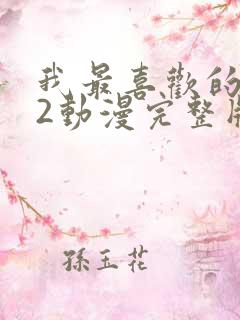 我最喜歡的
2動漫完整版
孫玉花